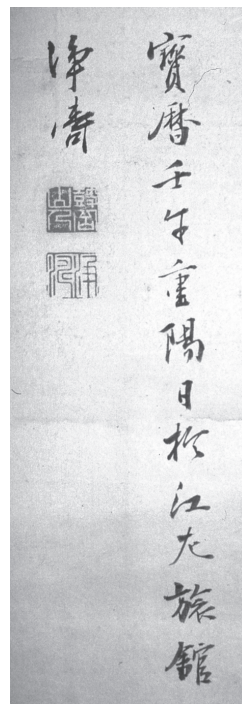 寶曆壬午重陽日於江左旅館
淨壽